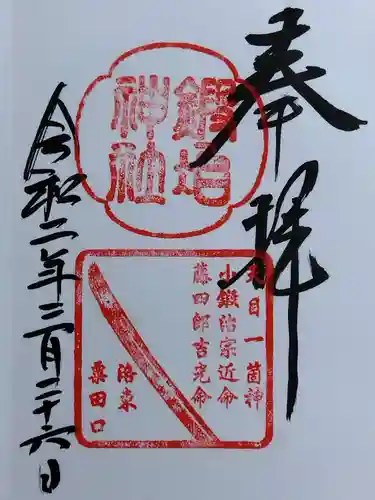 奉拝
鍛冶
神社
天目一箇神
小鍛冶宗近命
藤四郎吉光命
洛東
粟田口
令和二年三月二十六日